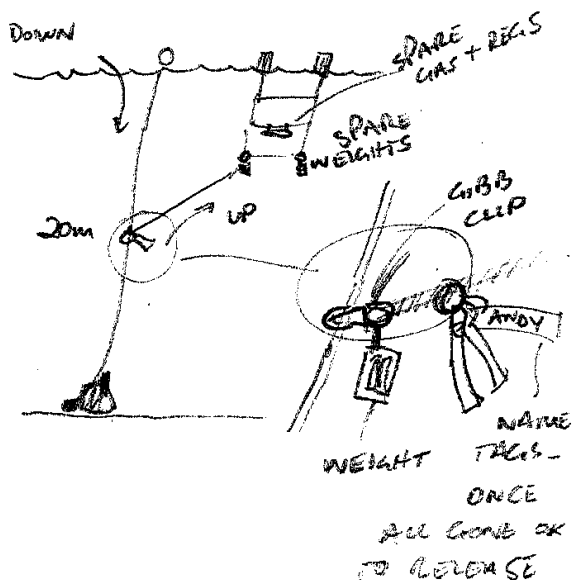 DOWN
SPARE
GAS + REGS
SPARE
WEIGHTS
20m
UP
GIBB
CLIP
ANDY
WEIGHT
NAME
TAGS_
ONCE
ALL GONE OK
TO RELEASE